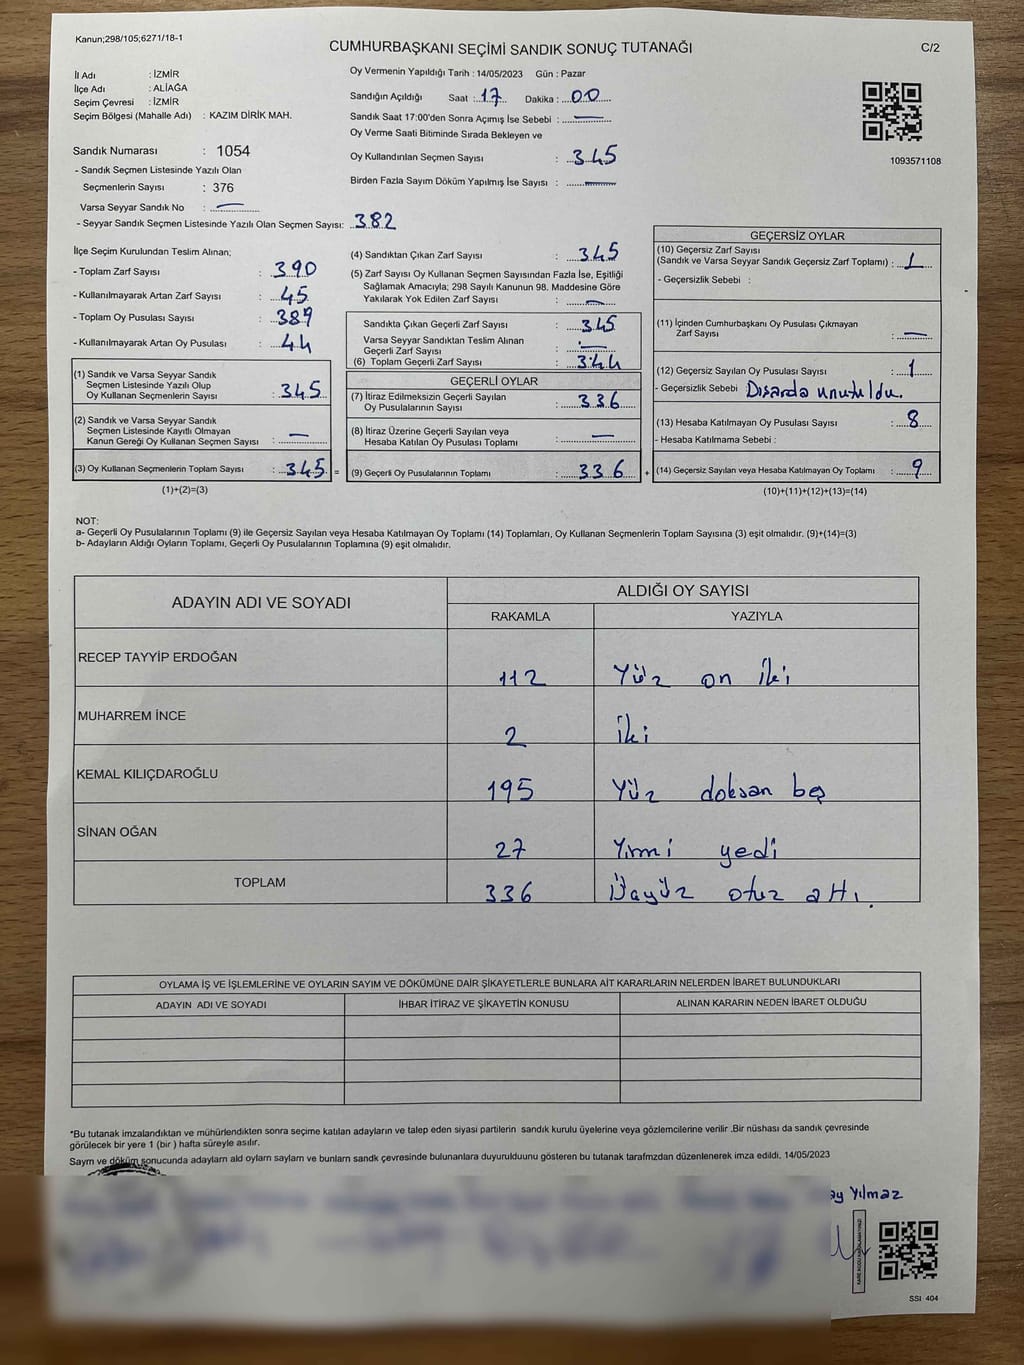 Kanun;298/105;6271/18-1
CUMHURBAŞKANI SEÇİMİ SANDIK SONUÇ TUTANAĞI
C/2
İl Adı : İZMİR
İlçe Adı : ALİAĞA
Seçim Çevresi : İZMİR
Seçim Bölgesi (Mahalle Adı) : KAZIM DİRİK MAH.
Sandık Numarası : 1054
- Sandık Seçmen Listesinde Yazılı Olan
Seçmenlerin Sayısı : 376
Varsa Seyyar Sandık No : —
- Seyyar Sandık Seçmen Listesinde Yazılı Olan Seçmen Sayısı: 382
Oy Vermenin Yapıldığı Tarih : 14/05/2023 Gün : Pazar
Sandığın Açıldığı Saat : 17 Dakika : 00
Sandık Saat 17:00'den Sonra Açımış İse Sebebi : —
Oy Verme Saati Bitiminde Sırada Bekleyen ve
Oy Kullandırılan Seçmen Sayısı : 345
Birden Fazla Sayım Döküm Yapılmış İse Sayısı : —
1093571108
İlçe Seçim Kurulundan Teslim Alınan;
- Toplam Zarf Sayısı : 390
- Kullanılmayarak Artan Zarf Sayısı : 45
- Toplam Oy Pusulası Sayısı : 389
- Kullanılmayarak Artan Oy Pusulası : 44
(1) Sandık ve Varsa Seyyar Sandık
Seçmen Listesinde Yazılı Olup
Oy Kullanan Seçmenlerin Sayısı : 345
(2) Sandık ve Varsa Seyyar Sandık
Seçmen Listesinde Kayıtlı Olmayan
Kanun Gereği Oy Kullanan Seçmen Sayısı : —
(3) Oy Kullanan Seçmenlerin Toplam Sayısı : 345 =
(1)+(2)=(3)
(4) Sandıktan Çıkan Zarf Sayısı : 345
(5) Zarf Sayısı Oy Kullanan Seçmen Sayısından Fazla İse, Eşitliği
Sağlamak Amacıyla; 298 Sayılı Kanunun 98. Maddesine Göre
Yakılarak Yok Edilen Zarf Sayısı : —
Sandıkta Çıkan Geçerli Zarf Sayısı : 345
Varsa Seyyar Sandıktan Teslim Alınan
Geçerli Zarf Sayısı : —
(6) Toplam Geçerli Zarf Sayısı : 344
GEÇERLİ OYLAR
(7) İtiraz Edilmeksizin Geçerli Sayılan
Oy Pusulalarının Sayısı : 336
(8) İtiraz Üzerine Geçerli Sayılan veya
Hesaba Katılan Oy Pusulası Toplamı : —
(9) Geçerli Oy Pusulalarının Toplamı : 336 +
GEÇERSİZ OYLAR
(10) Geçersiz Zarf Sayısı
(Sandık ve Varsa Seyyar Sandık Geçersiz Zarf Toplamı) : 1
- Geçersizlik Sebebi :
(11) İçinden Cumhurbaşkanı Oy Pusulası Çıkmayan
Zarf Sayısı : —
(12) Geçersiz Sayılan Oy Pusulası Sayısı : 1
- Geçersizlik Sebebi Dışarda unutuldu.
(13) Hesaba Katılmayan Oy Pusulası Sayısı : 8
- Hesaba Katılmama Sebebi :
(14) Geçersiz Sayılan veya Hesaba Katılmayan Oy Toplamı : 9
(10)+(11)+(12)+(13)=(14)
NOT:
a- Geçerli Oy Pusulalarının Toplamı (9) ile Geçersiz Sayılan veya Hesaba Katılmayan Oy Toplamı (14) Toplamları, Oy Kullanan Seçmenlerin Toplam Sayısına (3) eşit olmalıdır. (9)+(14)=(3)
b- Adayların Aldığı Oyların Toplamı, Geçerli Oy Pusulalarının Toplamına (9) eşit olmalıdır.
ADAYIN ADI VE SOYADI
ALDIĞI OY SAYISI
RAKAMLA YAZIYLA
RECEP TAYYİP ERDOĞAN 112 Yüz on iki
MUHARREM İNCE 2 İki
KEMAL KILIÇDAROĞLU 195 Yüz doksan beş
SİNAN OĞAN 27 Yirmi yedi
TOPLAM 336 Üçyüz otuz altı.
OYLAMA İŞ VE İŞLEMLERİNE VE OYLARIN SAYIM VE DÖKÜMÜNE DAİR ŞİKAYETLERLE BUNLARA AİT KARARLARIN NELERDEN İBARET BULUNDUKLARI
ADAYIN ADI VE SOYADI İHBAR İTİRAZ VE ŞİKAYETİN KONUSU ALINAN KARARIN NEDEN İBARET OLDUĞU
*Bu tutanak imzalandıktan ve mühürlendikten sonra seçime katılan adayların ve talep eden siyasi partilerin sandık kurulu üyelerine veya gözlemcilerine verilir .Bir nüshası da sandık çevresinde
görülecek bir yere 1 (bir ) hafta süreyle asılır.
Sayım ve döküm sonucunda adaylarn ald oylarn saylarn ve bunlarn sandk çevresinde bulunanlara duyurulduunu gösteren bu tutanak tarafmzdan düzenlenerek imza edildi. 14/05/2023
ay Yılmaz
SSI 404